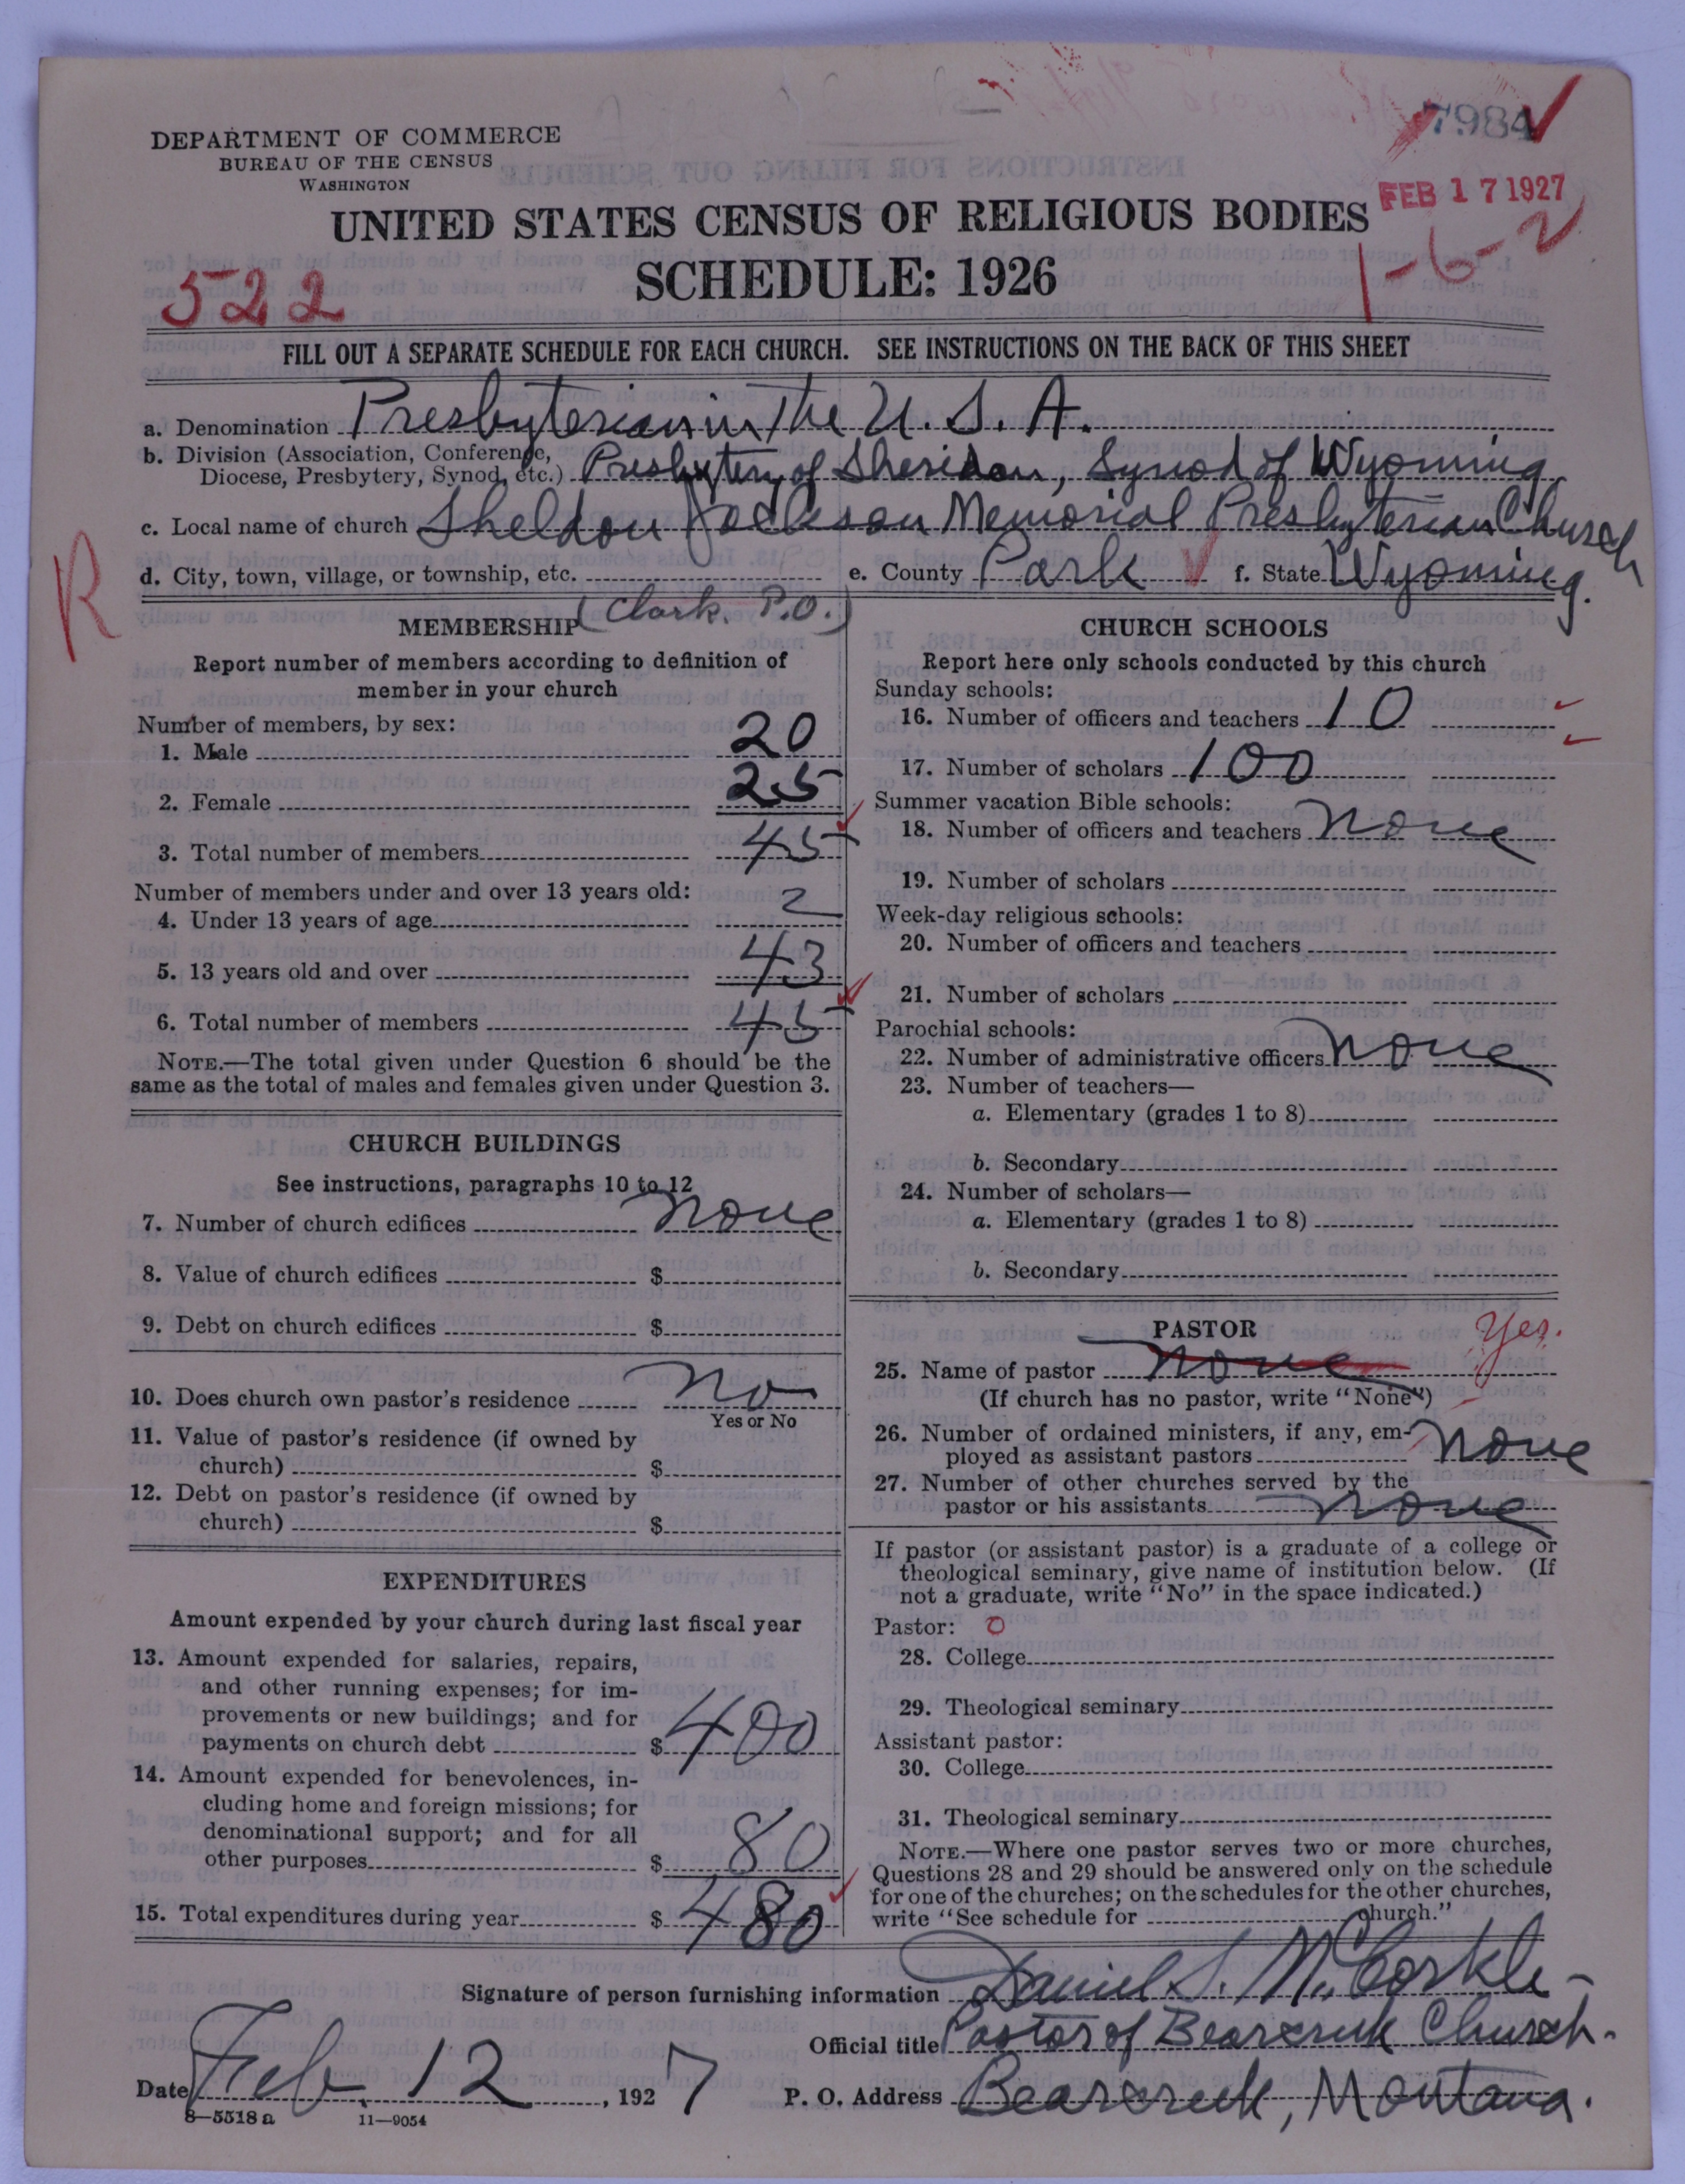 7984
DEPARTMENT OF COMMERCE
BUREAU OF THE CENSUS
WASHINGTON
FEB 17 1927
UNITED STATES CENSUS OF RELIGIOUS BODIES
1-6-2
SCHEDULE: 1926
522
FILL OUT A SEPARATE SCHEDULE FOR EACH CHURCH. SEE INSTRUCTIONS ON THE BACK OF THIS SHEET
a. Denomination Presbyterian in the U. S. A.
b. Division (Association, Conference,
Diocese, Presbytery, Synod, etc.) Presbytery of Sheridan, Synod of Wyoming
c. Local name of church Sheldon Jackson Memorial Presbyterian Church
R
d. City, town, village, or township, etc. e. County Park f. State Wyoming.
(Clark. P.O.)
MEMBERSHIP
Report number of members according to definition of
member in your church
Number of members, by sex:
1. Male 20
2. Female 25
3. Total number of members 45
Number of members under and over 13 years old:
4. Under 13 years of age 2
5. 13 years old and over 43
6. Total number of members 45
NOTE.—The total given under Question 6 should be the
same as the total of males and females given under Question 3.
CHURCH BUILDINGS
See instructions, paragraphs 10 to 12
7. Number of church edifices None
8. Value of church edifices $
9. Debt on church edifices $
10. Does church own pastor's residence No
Yes or No
11. Value of pastor's residence (if owned by
church) $
12. Debt on pastor's residence (if owned by
church) $
EXPENDITURES
Amount expended by your church during last fiscal year
13. Amount expended for salaries, repairs,
and other running expenses; for im-
provements or new buildings; and for
payments on church debt $ 400
14. Amount expended for benevolences, in-
cluding home and foreign missions; for
denominational support; and for all
other purposes $ 80
15. Total expenditures during year $ 480
CHURCH SCHOOLS
Report here only schools conducted by this church
Sunday schools:
16. Number of officers and teachers 10
17. Number of scholars 100
Summer vacation Bible schools:
18. Number of officers and teachers None
19. Number of scholars
Week-day religious schools:
20. Number of officers and teachers
21. Number of scholars
Parochial schools:
22. Number of administrative officers None
23. Number of teachers—
a. Elementary (grades 1 to 8)
b. Secondary
24. Number of scholars—
a. Elementary (grades 1 to 8)
b. Secondary
PASTOR Yes.
25. Name of pastor None
(If church has no pastor, write "None")
26. Number of ordained ministers, if any, em-
ployed as assistant pastors None
27. Number of other churches served by the
pastor or his assistants None
If pastor (or assistant pastor) is a graduate of a college or
theological seminary, give name of institution below. (If
not a graduate, write "No" in the space indicated.)
Pastor: 0
28. College
29. Theological seminary
Assistant pastor:
30. College
31. Theological seminary
NOTE.—Where one pastor serves two or more churches,
Questions 28 and 29 should be answered only on the schedule
for one of the churches; on the schedules for the other churches,
write "See schedule for church."
Signature of person furnishing information Daniel S. McCorkle
Official title Pastor of Bearcreek Church.
Date Feb. 12, 1927 P. O. Address Bearcreek, Montana.
8—5518 a 11—9054